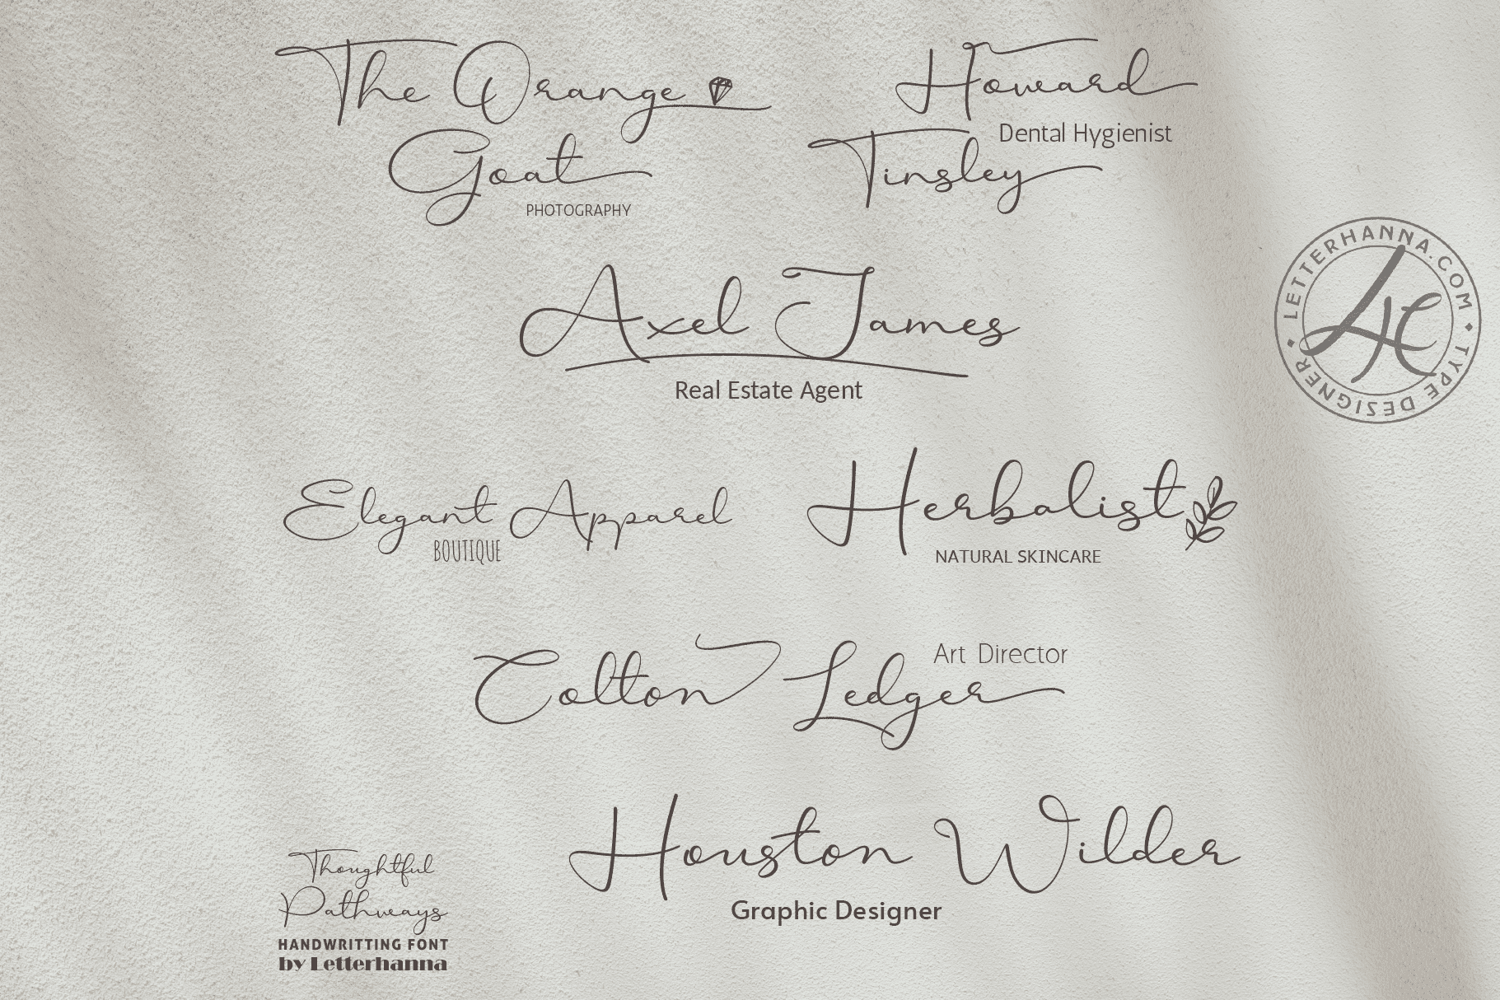 The Orange
Goat
PHOTOGRAPHY
Howard
Dental Hygienist
Tinsley
Axel James
Real Estate Agent
Elegant Apparel
BOUTIQUE
Herbalist
NATURAL SKINCARE
Colton Ledger
Art Director
Houston Wilder
Graphic Designer
Thoughtful
Pathways
HANDWRITTING FONT
by Letterhanna
LETTERHANNA.COM
TYPE DESIGNER
LH